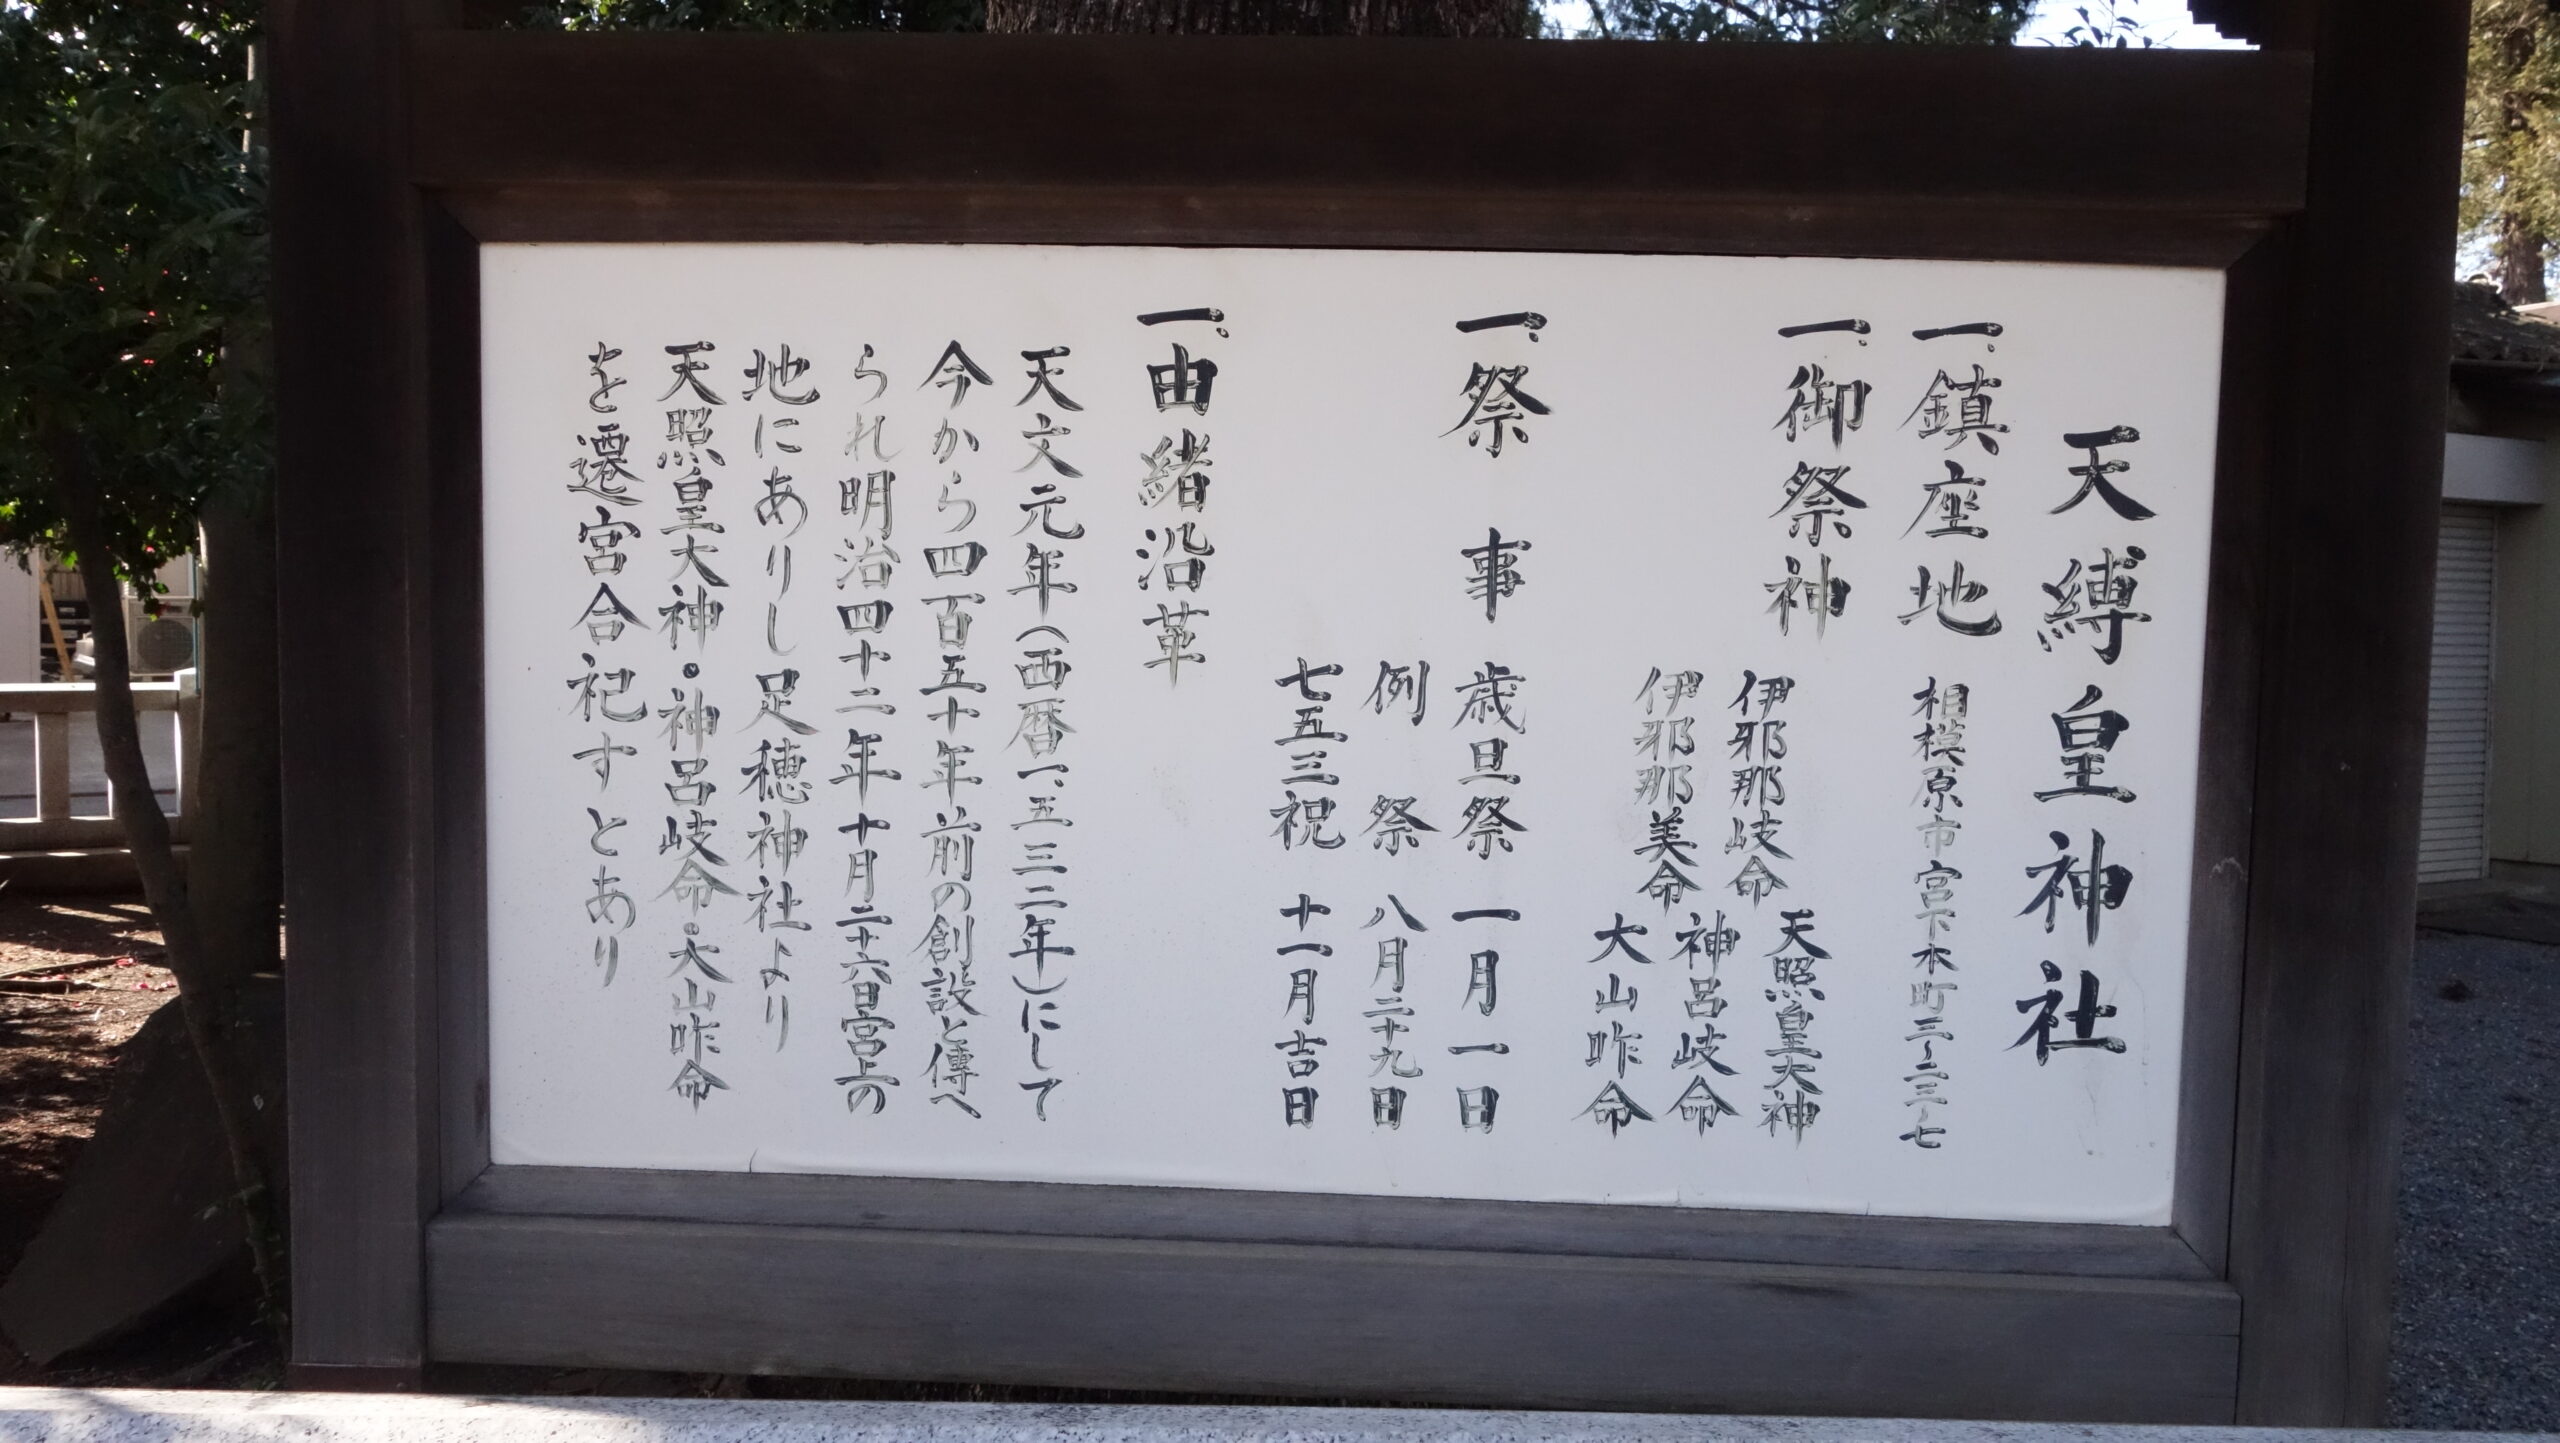 天縛皇神社
一、鎮座地 相模原市宮下本町三〜二三ノ七
一、御祭神
天照皇大神
伊邪那岐命
神呂岐命
伊邪那美命
大山咋命
一、祭 事 歳旦祭 一月一日
例 祭 八月二十九日
七五三祝 十一月吉日
一、由緒沿革
天文元年(西暦一、五三二年)にして
今から四百五十年前の創設と傳へ
られ明治四十二年十月二十六日宮上の
地にありし足穂神社より
天照皇大神・神呂岐命・大山咋命
を遷宮合祀すとあり